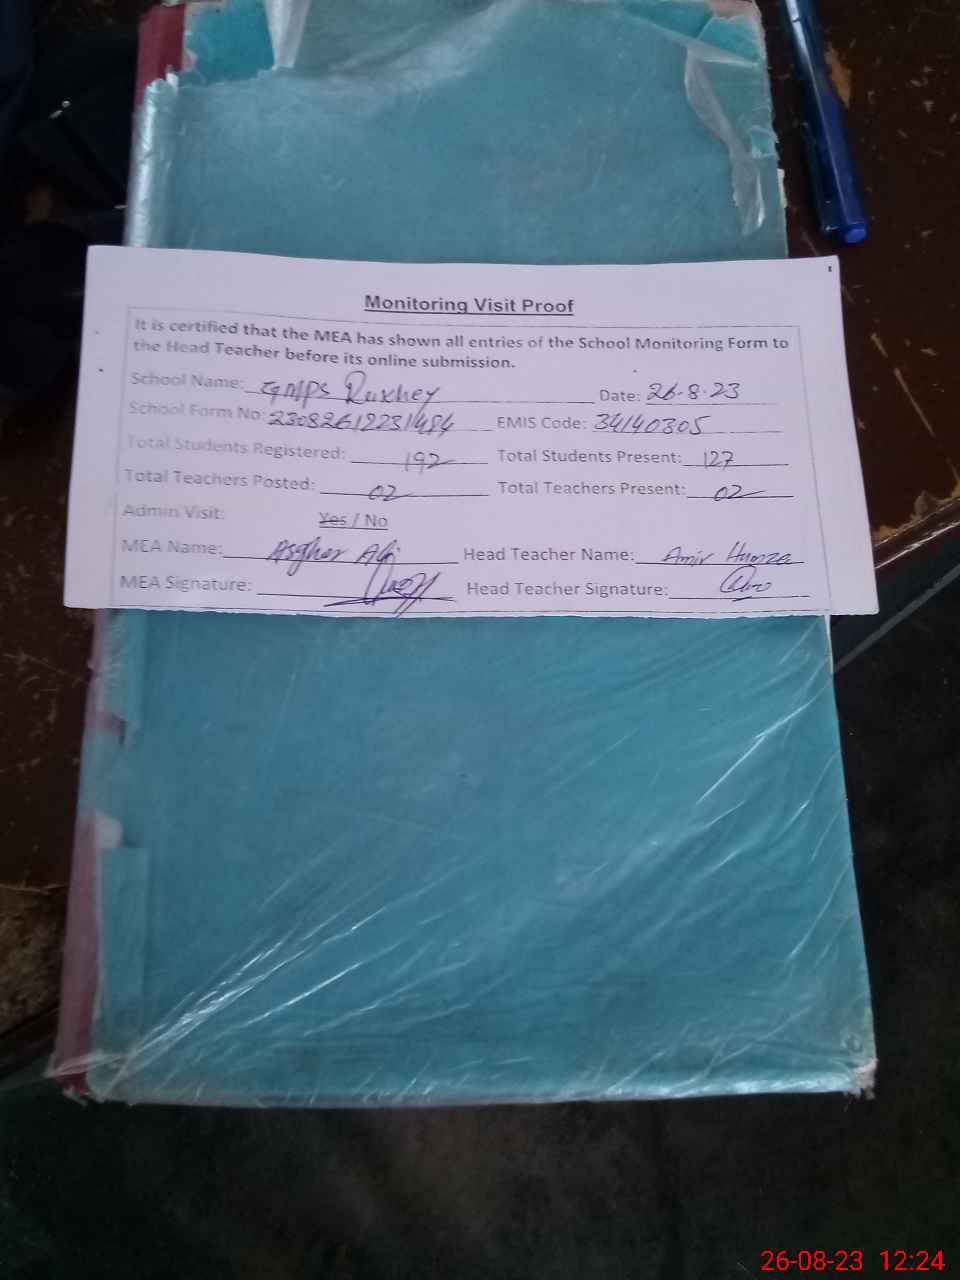 Monitoring Visit Proof
It is certified that the MEA has shown all entries of the School Monitoring Form to
the Head Teacher before its online submission.
School Name: GMPS Ruxhey Date: 26-8-23
School Form No: 23082612231484 EMIS Code: 34140305
Total Students Registered: 192 Total Students Present: 127
Total Teachers Posted: 02 Total Teachers Present: 02
Admin Visit: Yes / No
MEA Name: Asgher Ali Head Teacher Name: Amir Hamza
MEA Signature: Head Teacher Signature:
26-08-23 12:24